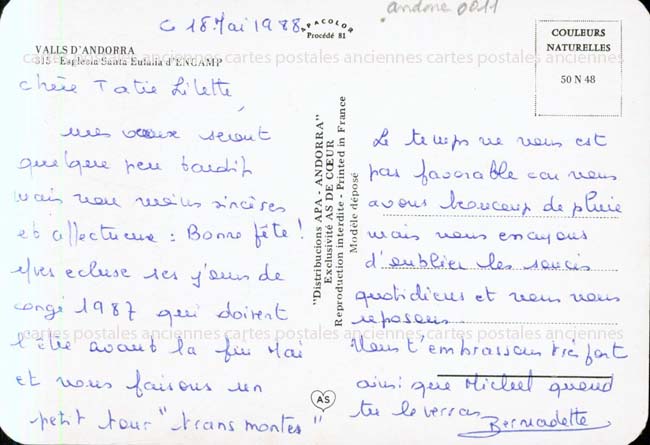 andorre 0011
C 18 Mai 1988
APACOLOR
Procédé 81
COULEURS
NATURELLES
50 N 48
VALLS D'ANDORRA
315 - Esglesia Santa Eulalia d'ENCAMP
cartes postales anciennes cartes postales anciennes cartes postales anciennes
Chère Tatie Lilette,
mes voeux seront
quelque peu tardifs
mais non moins sincères
et affectueux : Bonne fête !
Yves écluse ses jours de
congé 1987 qui doivent
l'être avant la fin Mai
et nous faisons un
petit tour "transmontes"
"Distribucions APA - ANDORRA"
Exclusivité AS DE CŒUR
Reproduction interdite - Printed in France
Modèle déposé
AS
Le temps ne nous est
pas favorable car nous
avons beaucoup de pluie
mais nous essayons
d'oublier les soucis
quotidiens et nous nous
reposons
cartes postales anciennes cartes postales anciennes cartes postales anciennes
Nous t'embrassons très fort
ainsi que Michel quand
tu le verras
Bernadette